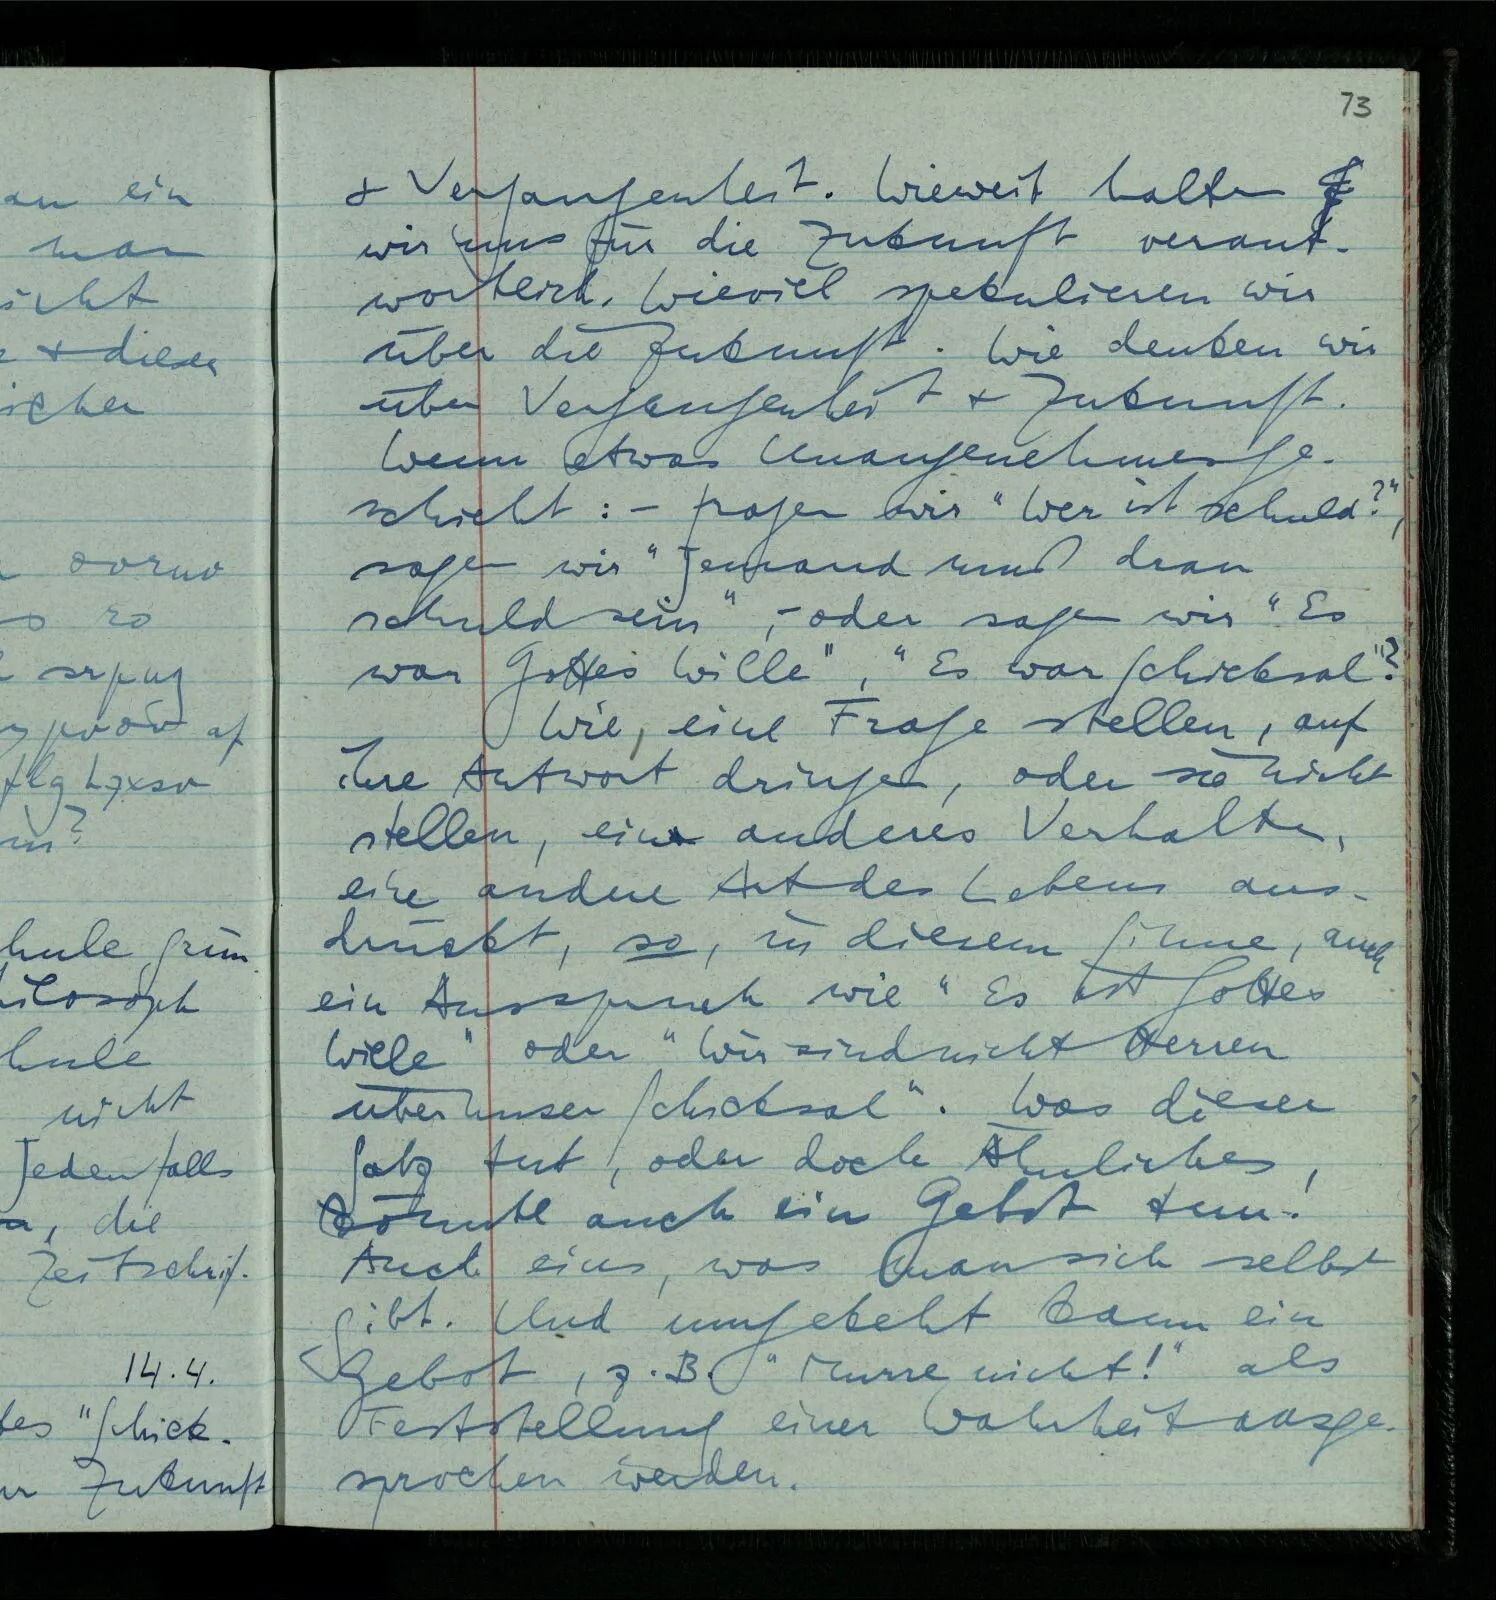 an ein
man
nicht
& diese
ischer
ovrnv
ro
srpnz
af
in?
hule grün
hilosoph
hule
nicht
Jedenfalls
, die
Zeitschrif-
14.4.
des "Schick-
Zukunft
73
& Vergangenheit. Wieweit halten
wir uns für die Zukunft verant-
wortlich. Wieviel spekulieren wir
über die Zukunft. Wie denken wir
über Vergangenheit & Zukunft.
Wenn etwas Unangenehmes ge-
schieht: – fragen wir "Wer ist schuld?",
sagen wir "Jemand muß dran
schuld sein", – oder sagen wir "Es
war Gottes Wille", "Es war Schicksal"?
Wie, eine Frage stellen, auf
ihre Antwort dringen, oder sie nicht
stellen, ein anderes Verhalten,
eine andere Art des Lebens aus-
drückt, so, in diesem Sinne, auch
ein Ausspruch wie "Es ist Gottes
Wille" oder "Wir sind nicht Herren
über unser Schicksal". Was dieser
Satz tut, oder doch Ähnliches,
könnte auch ein Gebot tun!
Auch eins, was man sich selbst
gibt. Und umgekehrt kann ein
Gebot, z.B. "Murre nicht!" als
Feststellung einer Wahrheit ausge-
sprochen werden.